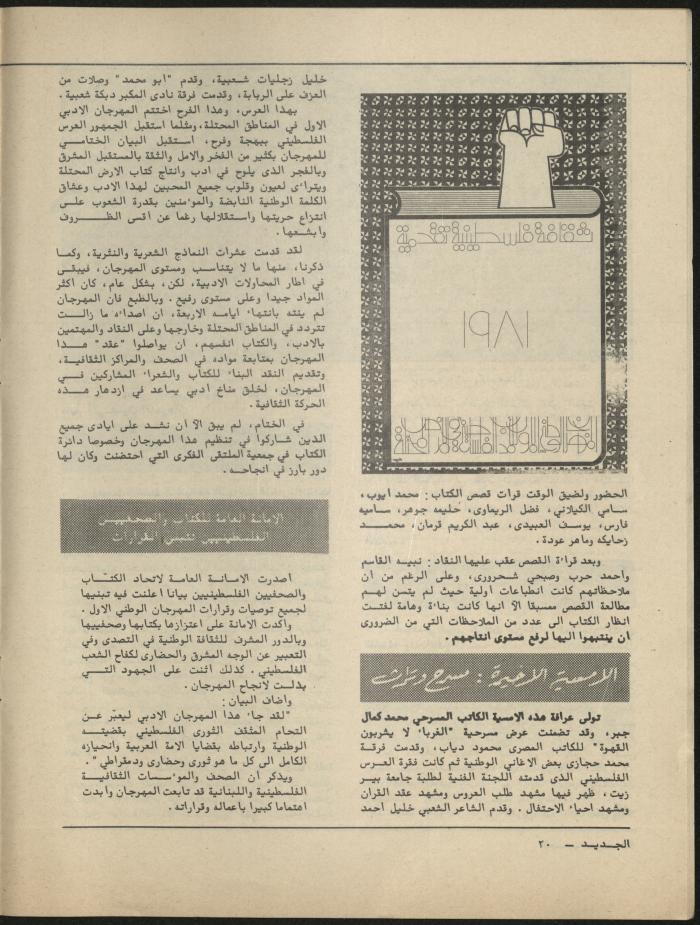 ثقافة فلسطينية تقدمية
١٩٨١
الحضور ولضيق الوقت قرأت قصص الكتاب : محمد ايوب ،
سامي الكيلاني ، فضل الريماوي ، حليمه جوهر ، ساميه
فارس ، يوسف العبيدي ، عبد الكريم قرمان ، محمـــد
زحايكه وماهر عودة .
وبعد قراءة القصص عقب عليها النقاد : نبيـــه القاسم
وأحمد حرب وصبحي شحروري ، وعلى الرغم من أن
ملاحظاتهم كانت انطباعات أولية حيث لم يتسن لهـــم
مطالعة القصص مسبقا الآ أنها كانت بناءة وهامة لفتـــت
انظار الكتاب الى عدد من الملاحظات التي من الضروري
أن ينتبهوا اليها لرفع مستوى انتاجهم .
الامسية الاخيرة : مسرح وتراث
تولى عرافة هذه الامسية الكاتب المسرحي محمد كمال
جبر ، وقد تضمنت عرض مسرحية "الغرباء لا يشربون
القهوة" للكاتب المصرى محمود دياب ، وقدمت فرقـــة
محمد حجازى بعض الاغاني الوطنية ثم كانت فقرة العـــرس
الفلسطيني الذى قدمته اللجنة الفنية لطلبة جامعة بيـــر
زيت ، ظهر فيها مشهد طلب العروس ومشهد عقد القران
ومشهد احياء الاحتفال . وقدم الشاعر الشعبي خليل أحمد
خليل زجليات شعبية ، وقدم "ابو محمد" وصلات من
العزف على الربابة ، وقدمت فرقة نادى المكبر دبكة شعبية .
بهذا العرس ، وهذا الفرح اختتم المهرجان الادبي
الاول في المناطق المحتلة ، ومثلما استقبل الجمهور العرس
الفلسطيني ببهجة وفرح ، استقبل البيان الختامـــي
للمهرجان بكثير من الفخر والامل والثقة بالمستقبل المشرق
وبالفجر الذى يلوح في ادب وانتاج كتاب الارض المحتلة
ويتراءى لعيون وقلوب جميع المحبين لهذا الادب وعشاق
الكلمة الوطنية النابضة والمؤمنين بقدرة الشعوب علـــى
انتزاع حريتها واستقلالها رغما عن أقسى الظـــروف
وابشعها .
لقد قدمت عشرات النماذج الشعرية والنثرية ، وكمـا
ذكرنا ، منها ما لا يتناسب ومستوى المهرجان ، فيبقـى
في اطار المحاولات الادبية ، لكن ، بشكل عام ، كان اكثر
المواد جيدا وعلى مستوى رفيع . وبالطبع فان المهرجان
لم ينته بانتهاء ايامه الاربعة ، ان اصداءه ما زالـــت
تتردد في المناطق المحتلة وخارجها وعلى النقاد والمهتمين
بالادب ، والكتاب انفسهم ، ان يواصلوا "عقد" هـــذا
المهرجان بمتابعة مواده في الصحف والمراكز الثقافيـــة ،
وتقديم النقد البناء للكتاب والشعراء المشاركين فـــي
المهرجان ، لخلق مناخ أدبي يساعد في ازدهار هـــذه
الحركة الثقافية .
في الختام ، لم يبق الآ أن نشـد على ايادى جميع
الذين شاركوا في تنظيم هذا المهرجان وخصوصا دائرة
الكتاب في جمعية الملتقى الفكرى التي احتضنت وكان لها
دور بارز في انجاحـــه .
الامانة العامة للكتاب والصحفييـن
الفلسطينيين تتبنى القرارات
أصدرت الامـــانـــة العامـــة لاتحاد الكتـّــاب
والصحفيين الفلسطينيين بيانا أعلنت فيه تبنيها
لجميع توصيات وقرارات المهرجان الوطني الاول .
وأكدت الامانة على اعتزازها بكتابها وصحفييها
وبالدور المشرف للثقافة الوطنية في التصدى وفي
التعبير عن الوجه المشرق والحضارى لكفاح الشعب
الفلسطيني . كذلك أثنت على الجهود التـــي
بذلـــت لانجاح المهرجان .
وأضاف البيان :
"لقد جاء هذا المهرجان الادبي ليعبّر عـــن
التحام المثقف الثورى الفلسطيني بقضيتـــه
الوطنية وارتباطه بقضايا الامة العربية وانحيازه
الكامل الى كل ما هو ثورى وحضارى ودمقراطي" .
ويذكر أن الصحف والمؤسسات الثقافيـــة
الفلسطينية واللبنانية قد تابعت المهرجان وأبدت
اهتماما كبيرا بأعماله وقراراته .
الجـــديـــد — ٢٠